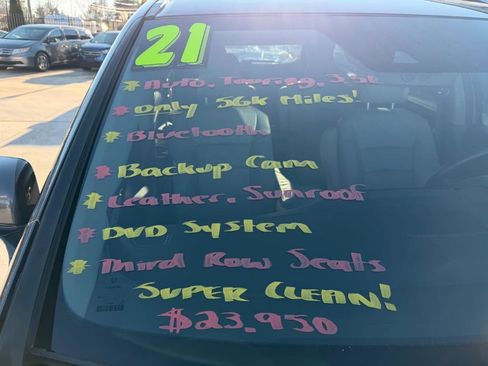 21
* Auto, Touring, 3.5L
* Only 56k Miles!
* Bluetooth
* Backup Cam
* Leather, Sunroof
* DVD System
* Third Row Seats
Super Clean!
$23,950